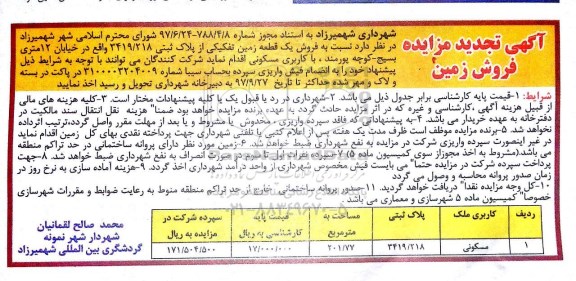 آگهی تجدید مزایده
فروش زمین
شهرداری شهمیرزاد به استناد مجوز شماره ۷۸۸/۴/۸-۹۷/۶/۲۴ شورای محترم اسلامی شهر شهمیرزاد
در نظر دارد نسبت به فروش یک قطعه زمین تفکیکی از پلاک ثبتی ۳۴۱۹/۲۱۸ واقع در خیابان ۱۲متری
بسیج-کوچه پورمند ، با کاربری مسکونی اقدام نماید شرکت کنندگان می توانند با توجه به شرایط ذیل
پیشنهاد خود را به انضمام فیش واریزی سپرده بحساب سیبا شماره ۳۱۰۰۰۰۳۲۰۴۰۰۹ در پاکت در بسته
و لاک و مهر شده حداکثر تا تاریخ ۹۷/۹/۲۷ به دبیرخانه شهرداری تحویل و رسید اخذ نمایید
شرایط: ۱-قیمت پایه کارشناسی برابر جدول ذیل می باشد. ۲-شهرداری در رد یا قبول یک یا کلیه پیشنهادات مختار است. ۳-کلیه هزینه های مالی
از قبیل هزینه آگهی ،کارشناسی و غیره که در اثر مزایده حادث گردد به عهده برنده مزایده خواهد بود ضمناً هزینه نقل انتقال سند مالکیت در
دفترخانه به عهده خریدار می باشد. ۴-به پیشنهاداتی که فاقد سپرده واریزی ، مخدوش یا مشروط و یا بعد از مهلت مقرر واصل گردد،ترتیب اثرداده
نخواهد شد. ۵-برنده مزایده موظف است ظرف مدت یک هفته پس از اعلام کتبی یا تلفنی شهرداری جهت پرداخته نقدی بهای کل زمین اقدام نماید
در غیر اینصورت سپرده واریزی شرکت در مزایده به نفع شهرداری ضبط خواهد شد. ۶-زمین مورد نظر دارای پروانه ساختمانی در حد تراکم منطقه
می باشد.(مشروط به اخذ مجوزاز سوی کمیسیون ماده ۵) ۷-سپرده نفرات اول تا سوم در صورت انصراف به نفع شهرداری ضبط خواهد شد. ۸-جهت
پرداخت سپرده شرکت در مزایده حتماً می بایست فیش مخصوص شهرداری از واحد درآمد شهرداری اخذ گردد. ۹-هزینه آماده سازی به نرخ روز در
زمان صدور پروانه محاسبه و وصول می گردد
۱۰-کل وجه مزایده نقداً دریافت خواهد گردید. ۱۱-صدور پروانه ساختمانی خارج از حد تراکم منطقه منوط به رعایت ضوابط و مقررات شهرسازی
خصوصاً کمیسیون ماده ۵ شهرسازی و معماری می باشد
ردیف کاربری ملک پلاک ثبتی مساحت به مترمربع قیمت پایه کارشناسی به ریال سپرده شرکت در مزایده به ریال
۱ مسکونی ۳۴۱۹/۲۱۸ ۲۰۱/۷۷ ۱۷/۰۰۰/۰۰۰ ۱۷۱/۵۰۴/۵۰۰
محمد صالح لقمانیان
شهردار شهر نمونه
گردشگری بین المللی شهمیرزاد